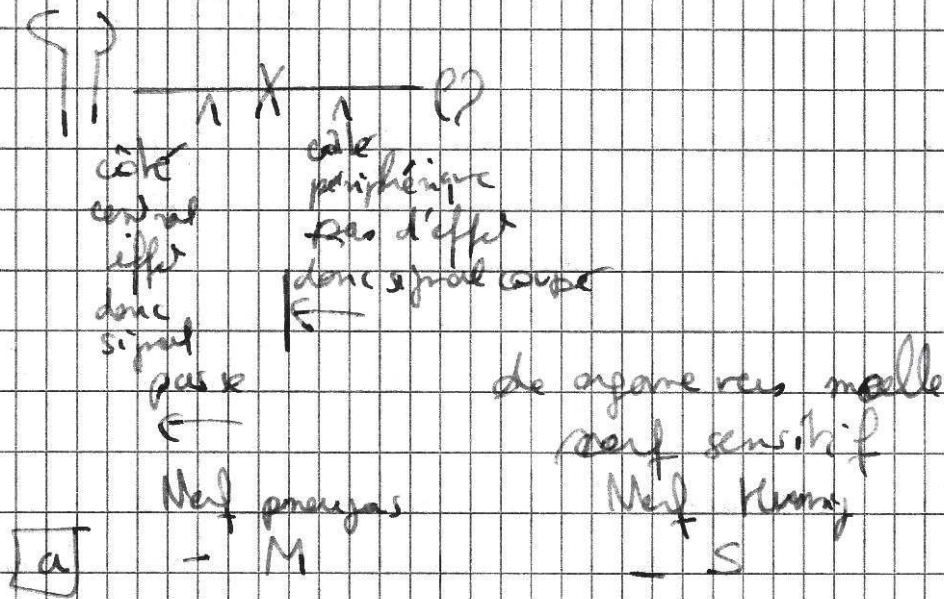 côté
central
effet
donc
signal
passe
côté
périphérique
pas d'effet
donc signal coupé
de organe vers moelle
nerf sensitif
Nerf pneugas
Nerf Hering
a
- M
- S